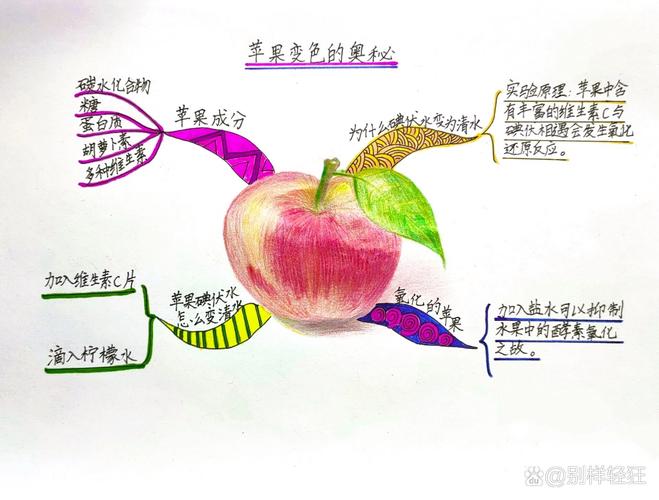 苹果变色的奥秘
碳水化合物
糖
蛋白质
胡萝卜素
多种维生素
苹果成分
为什么碘伏水变为清水
实验原理：苹果中含
有丰富的维生素C与
碘伏相遇会发生氧化
还原反应。
加入维生素C片
滴入柠檬水
苹果碘伏水
怎么变清水
氧化的
苹果
加入盐水可以抑制
水果中的酵素氧化
之故。
Bai度@别样轻狂